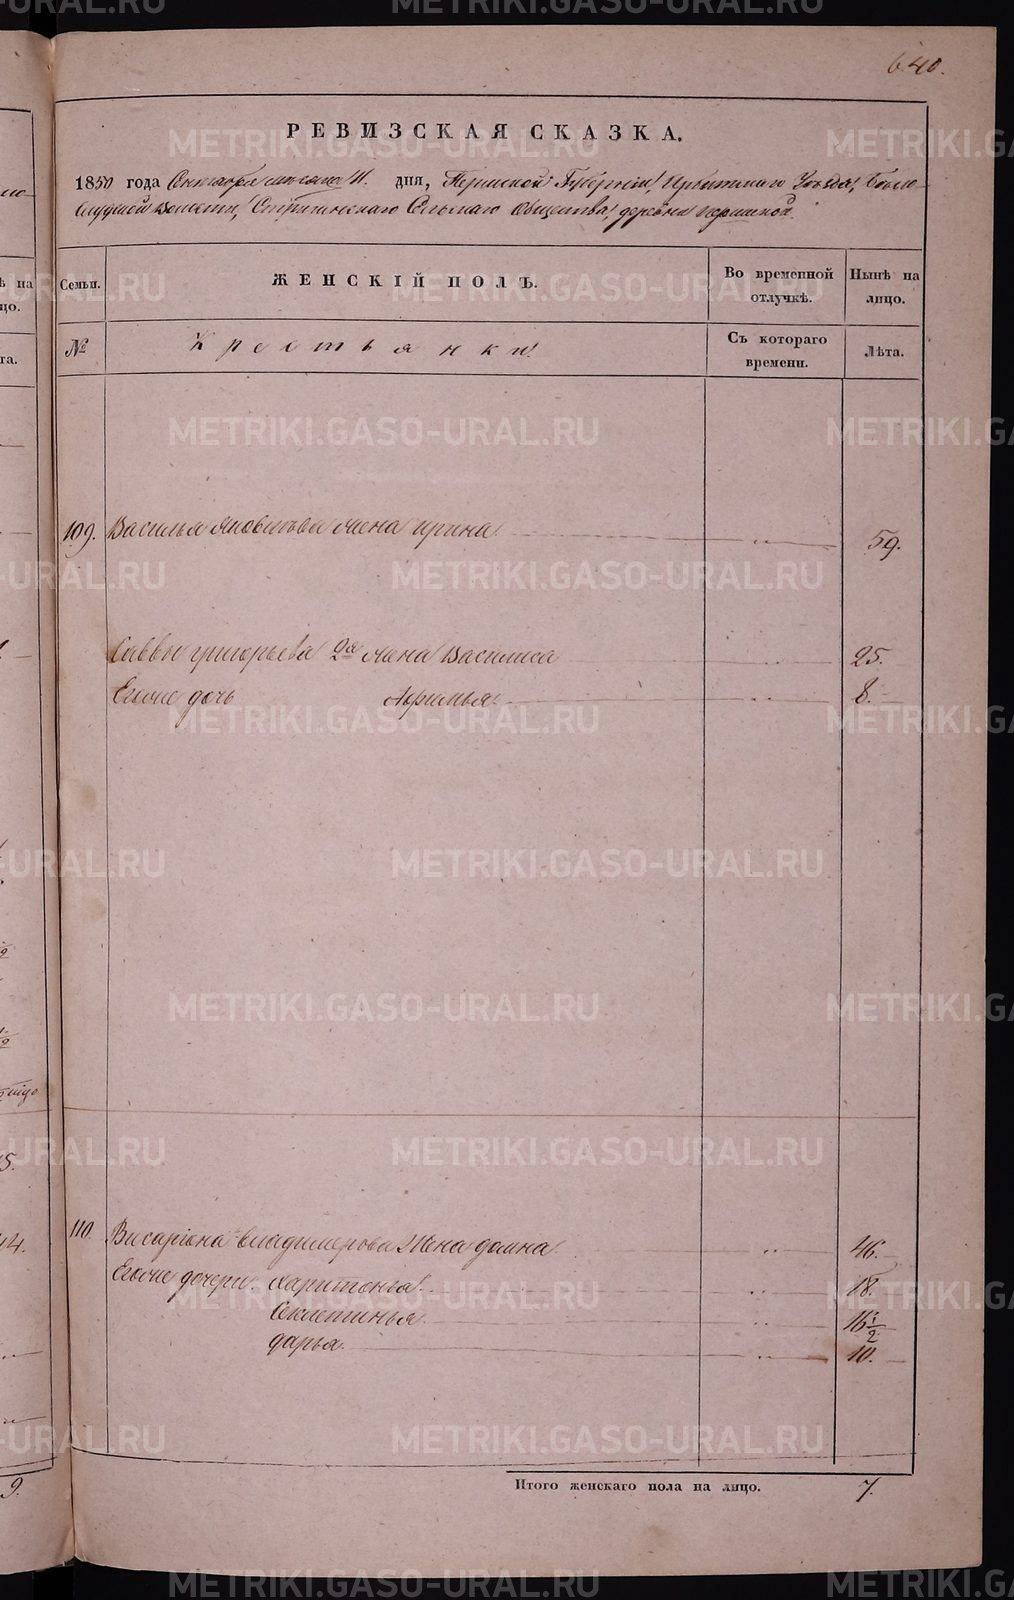 640.
РЕВИЗСКАЯ СКАЗКА.
1850 года Сентября месяца 11. дня, Пермской Губернии, Ирбитскаго Уезда, Бело-
слудской Волости, Стриганскаго Сельскаго Общества, деревни
Семьи. ЖЕНСКІЙ ПОЛЪ. Во временной отлучкѣ. Нынѣ на лицо.
№ Крестьянки Съ котораго времени. Лѣта.
109. Василья Яковлева жена Ирина 59.
Саввы Григорьева 2я жена Василиса 25.
Его же дочь Афимья 8.
110 Висаріона Владимерова жена домна 46.
Его же дочери Харитонья 18.
Секлетинья 16 1/2
дарья. 10.
Итого женскаго пола на лицо. 7.
METRIKI.GASO-URAL.RU